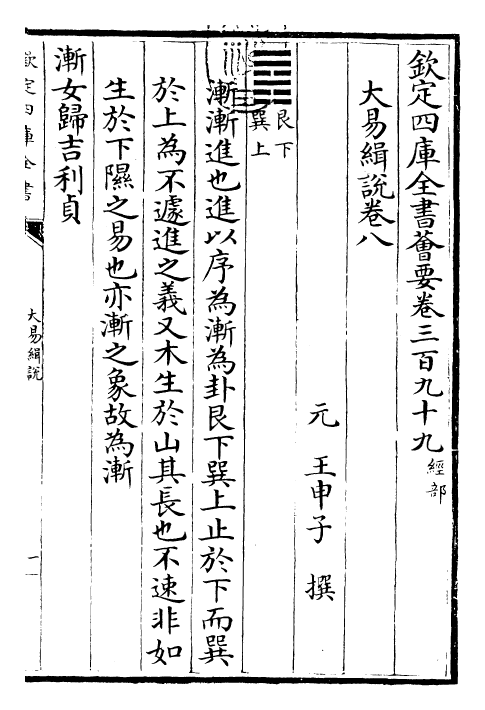 欽定四庫全書薈要卷三百九十九 經部
大易緝說卷八
元 王申子 撰
艮下
巽上
漸漸進也進以序為漸為卦艮下巽上止於下而巽
於上為不遽進之義又木生於山其長也不速非如
生於下隰之易也亦漸之象故為漸
漸女歸吉利貞
欽定四庫全書
大易緝說
一